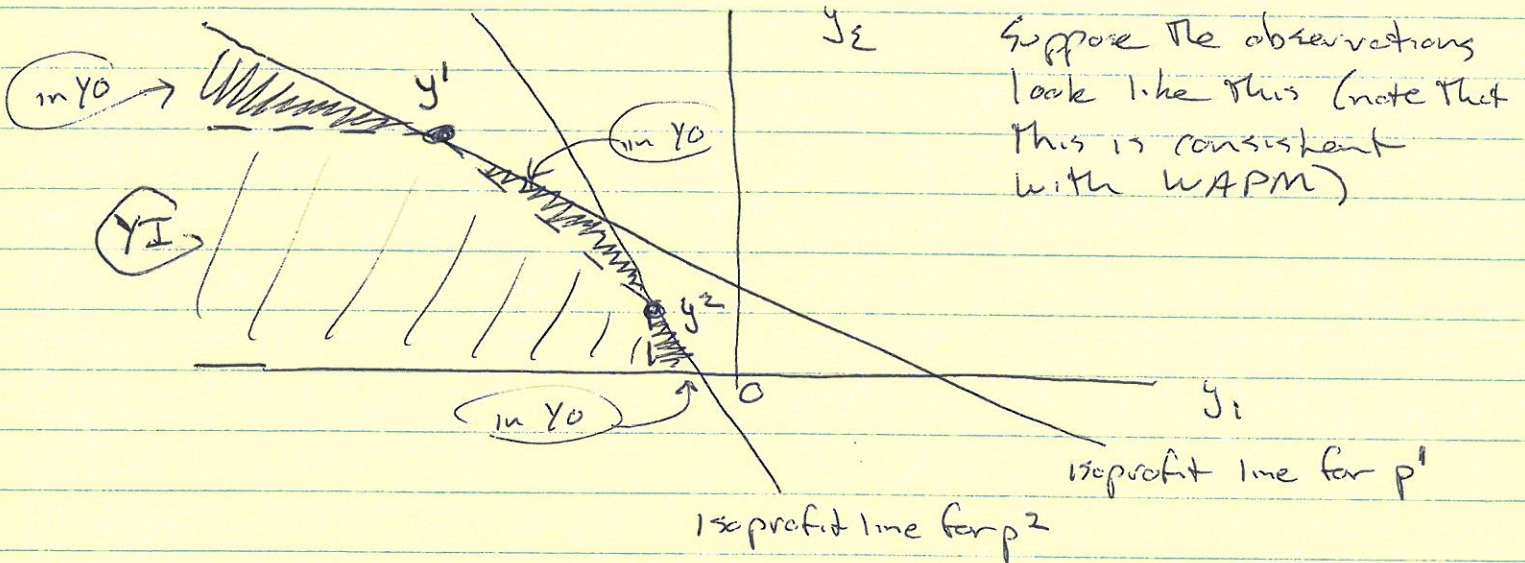 y₂
Suppose the observations
look like this (note that
this is consistent
with WAPM)
in YO
y¹
in YO
YI
y²
in YO
O
y₁
isoprofit line for p¹
Isoprofit line for p²